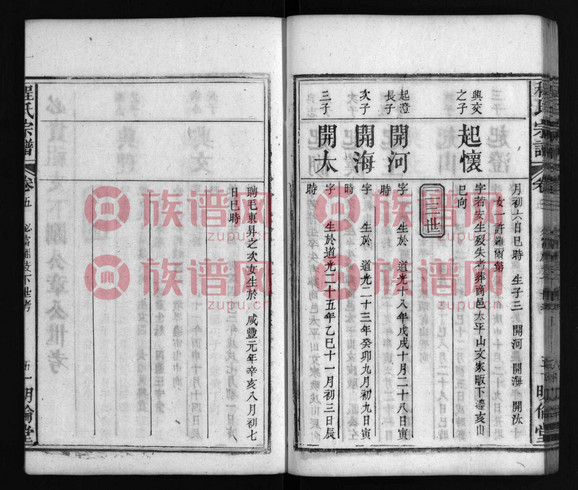 月初六日巳時　生子三　開河　開海　開汰
女一許
興交之子
起懷
字若安生歿失考葬商邑太平山文案畈下灣亥山巳向
三世
起澄長子
開河
字　生於　道光十八年戊戌十月二十八日寅時
次子
開海
字　生於　道光二十三年癸卯九月初九日寅時
三子
開太
字　生於道光二十五年乙巳十一月初三日辰時
明倫堂
聘毛東昇之次女生於　咸豐元年辛亥八月初七日巳時
程氏宗譜
卷五
明倫堂
族谱网
zupu.cn
族谱网
zupu.cn
族谱网
zupu.cn
族谱网
zupu.cn